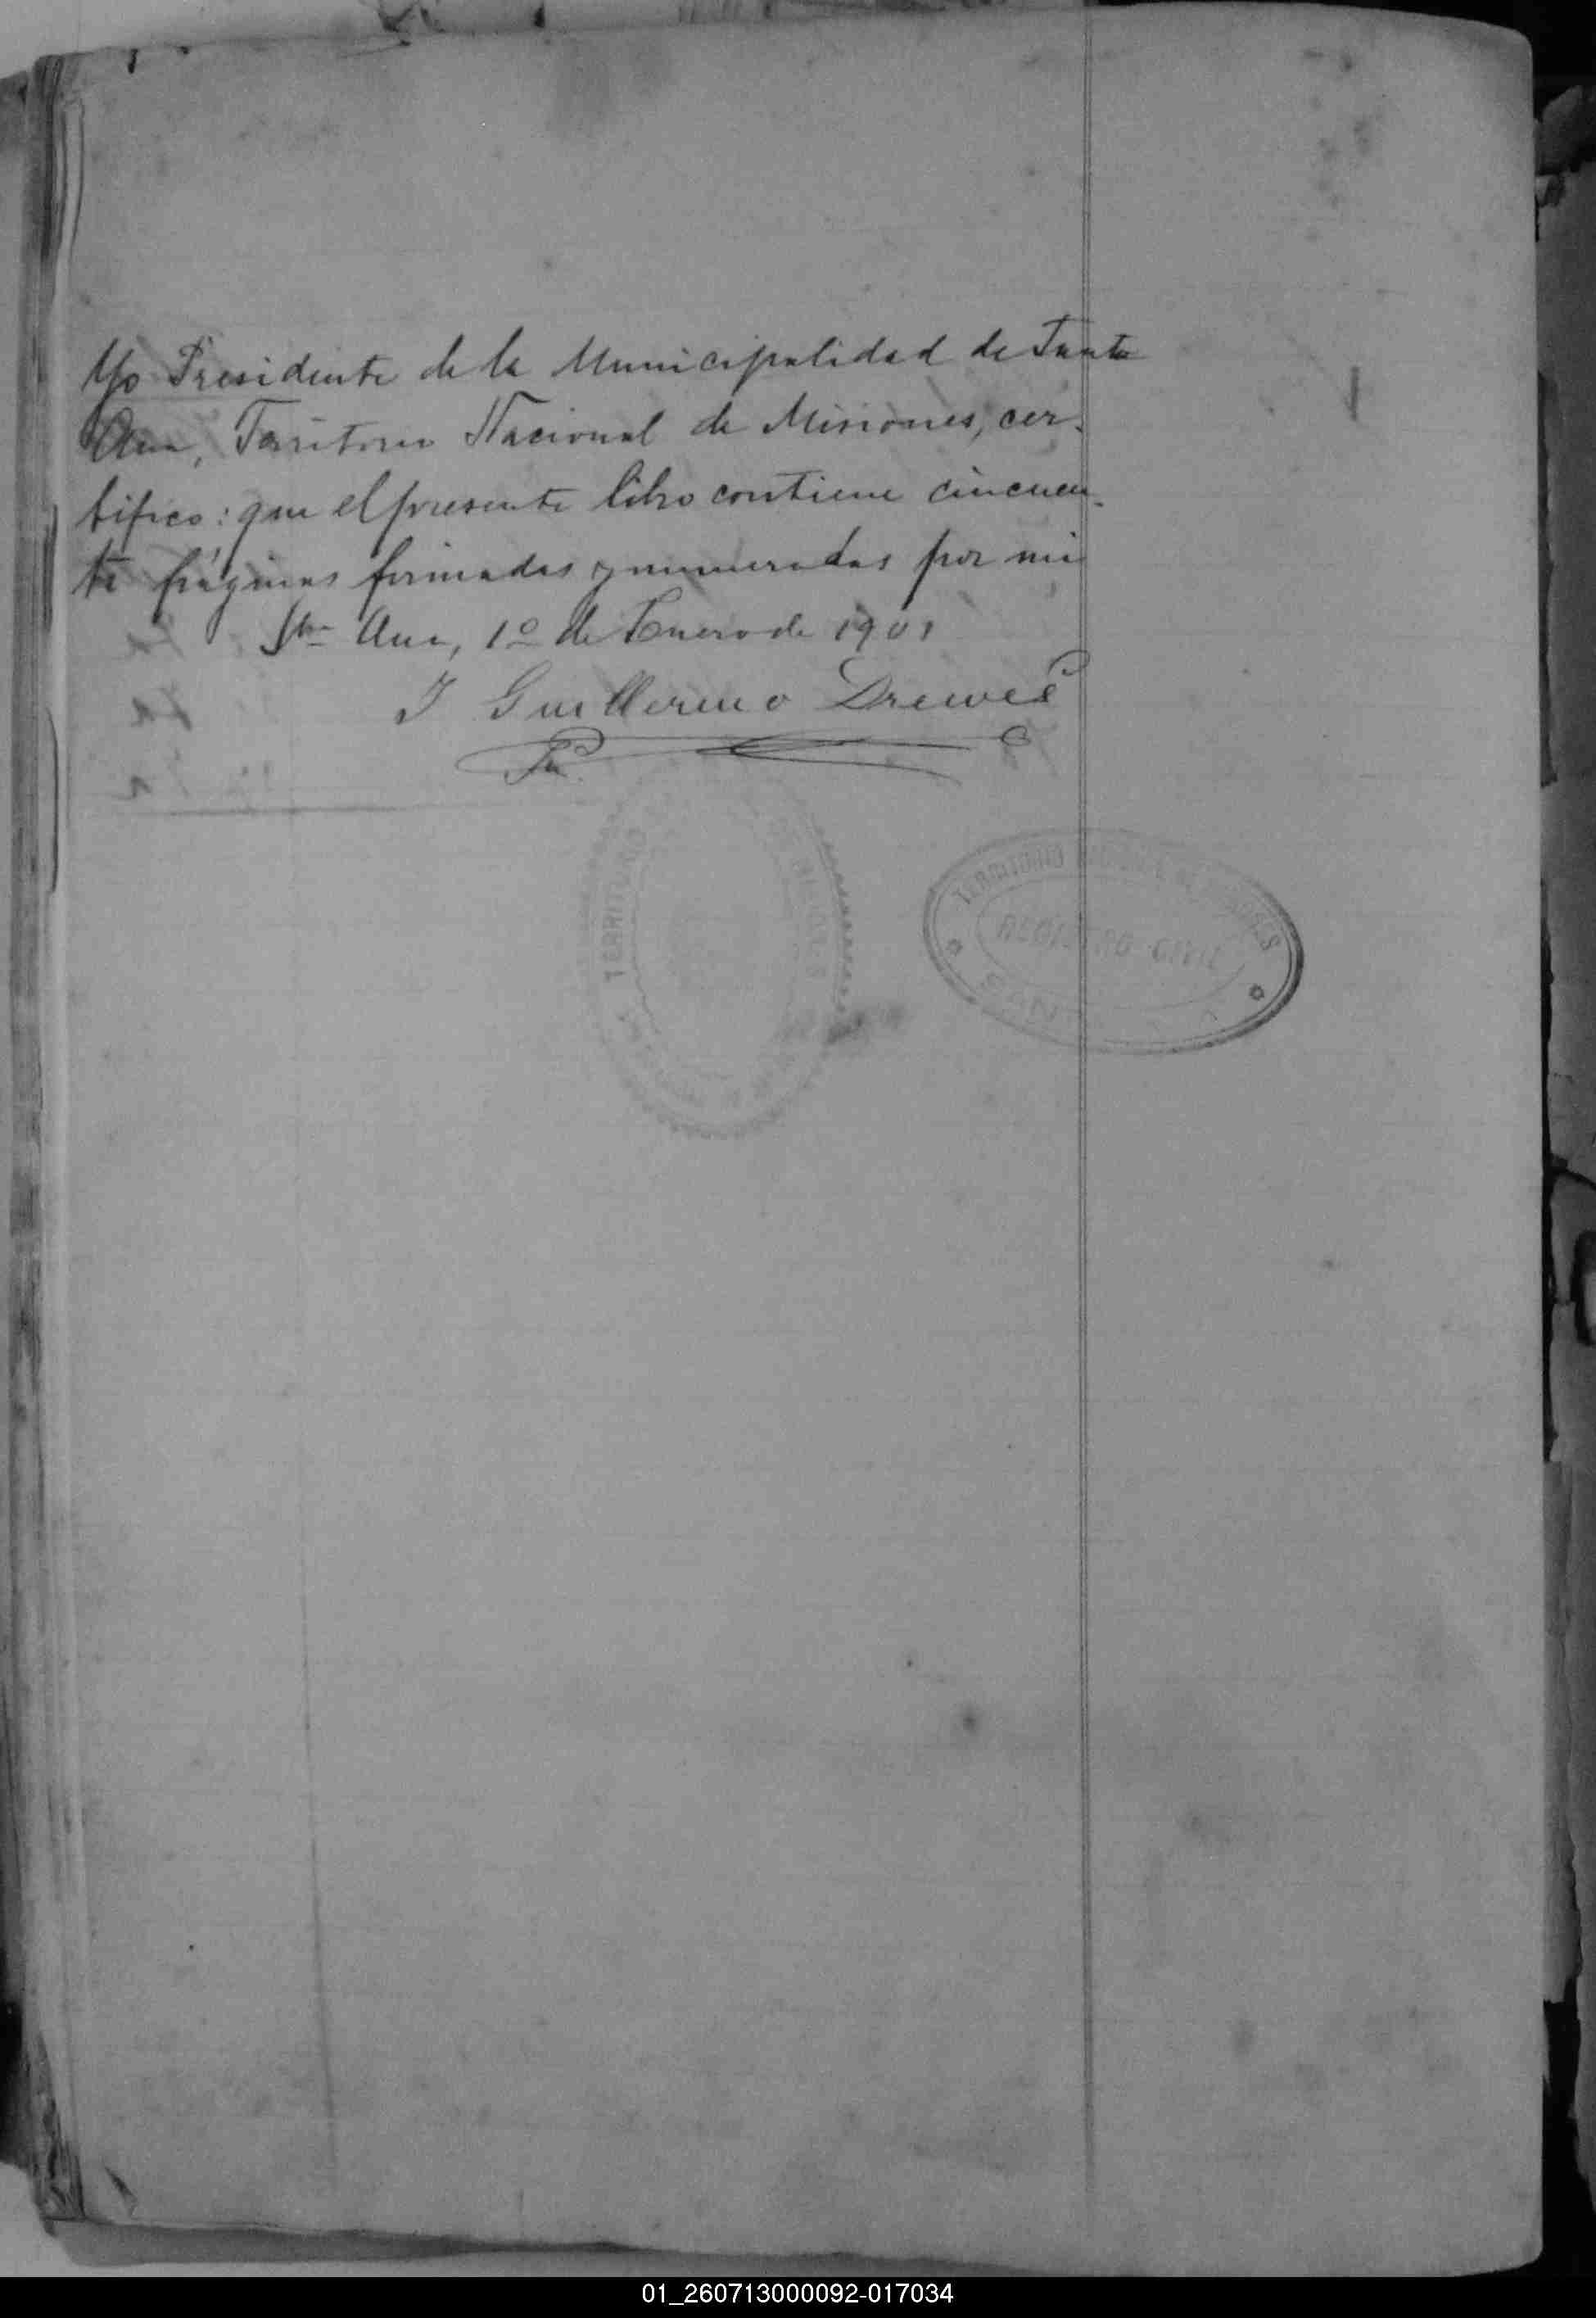 Yo Presidente de la Municipalidad de Santa
Ana, Territorio Nacional de Misiones, cer-
tifico: que el presente libro contiene cincuen-
ta páginas firmadas y numeradas por mi
Sta Ana, 1º de Enero de 1901
J Guillermo Drewes
TERRITORIO
TERRITORIO
REGISTRO CIVIL
01_260713000092-017034